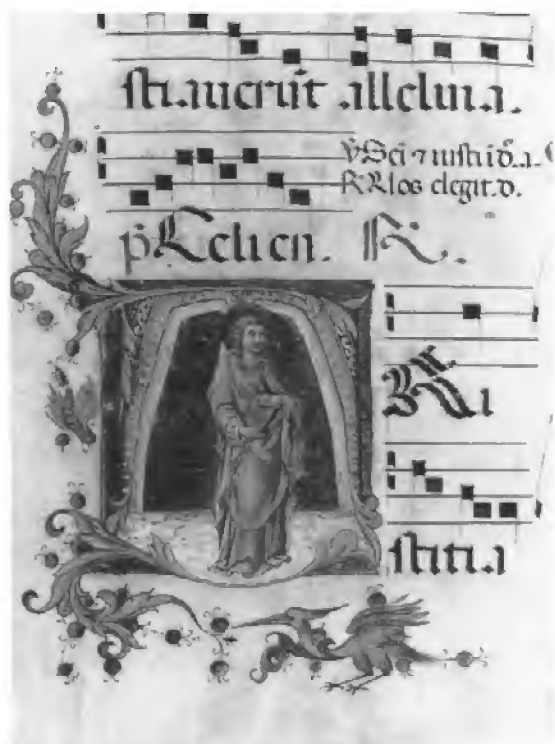 sti.auerūt .alleluia.
℣ Sci ⁊ iusti i dō. a.
℟ Nos elegit. d.
p̄ Celi en. ℟.
Ri
stiti.a